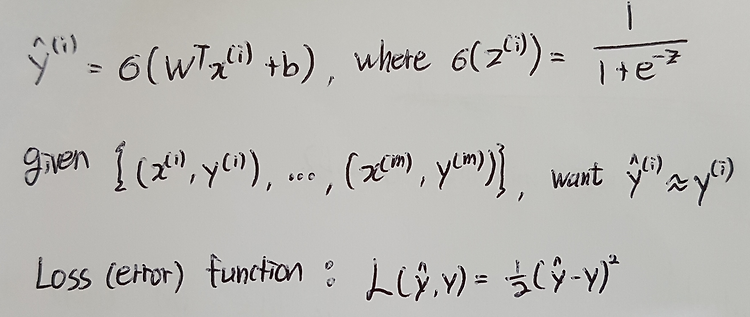 ŷ⁽ⁱ⁾ = σ(Wᵀx⁽ⁱ⁾ + b), where σ(z⁽ⁱ⁾) = 1 / (1 + e^(-z))
given {(x⁽ⁱ⁾, y⁽ⁱ⁾), ..., (x⁽ᵐ⁾, y⁽ᵐ⁾)}, want ŷ⁽ⁱ⁾ ≈ y⁽ⁱ⁾
Loss (error) function : L(ŷ, y) = ½(ŷ - y)²